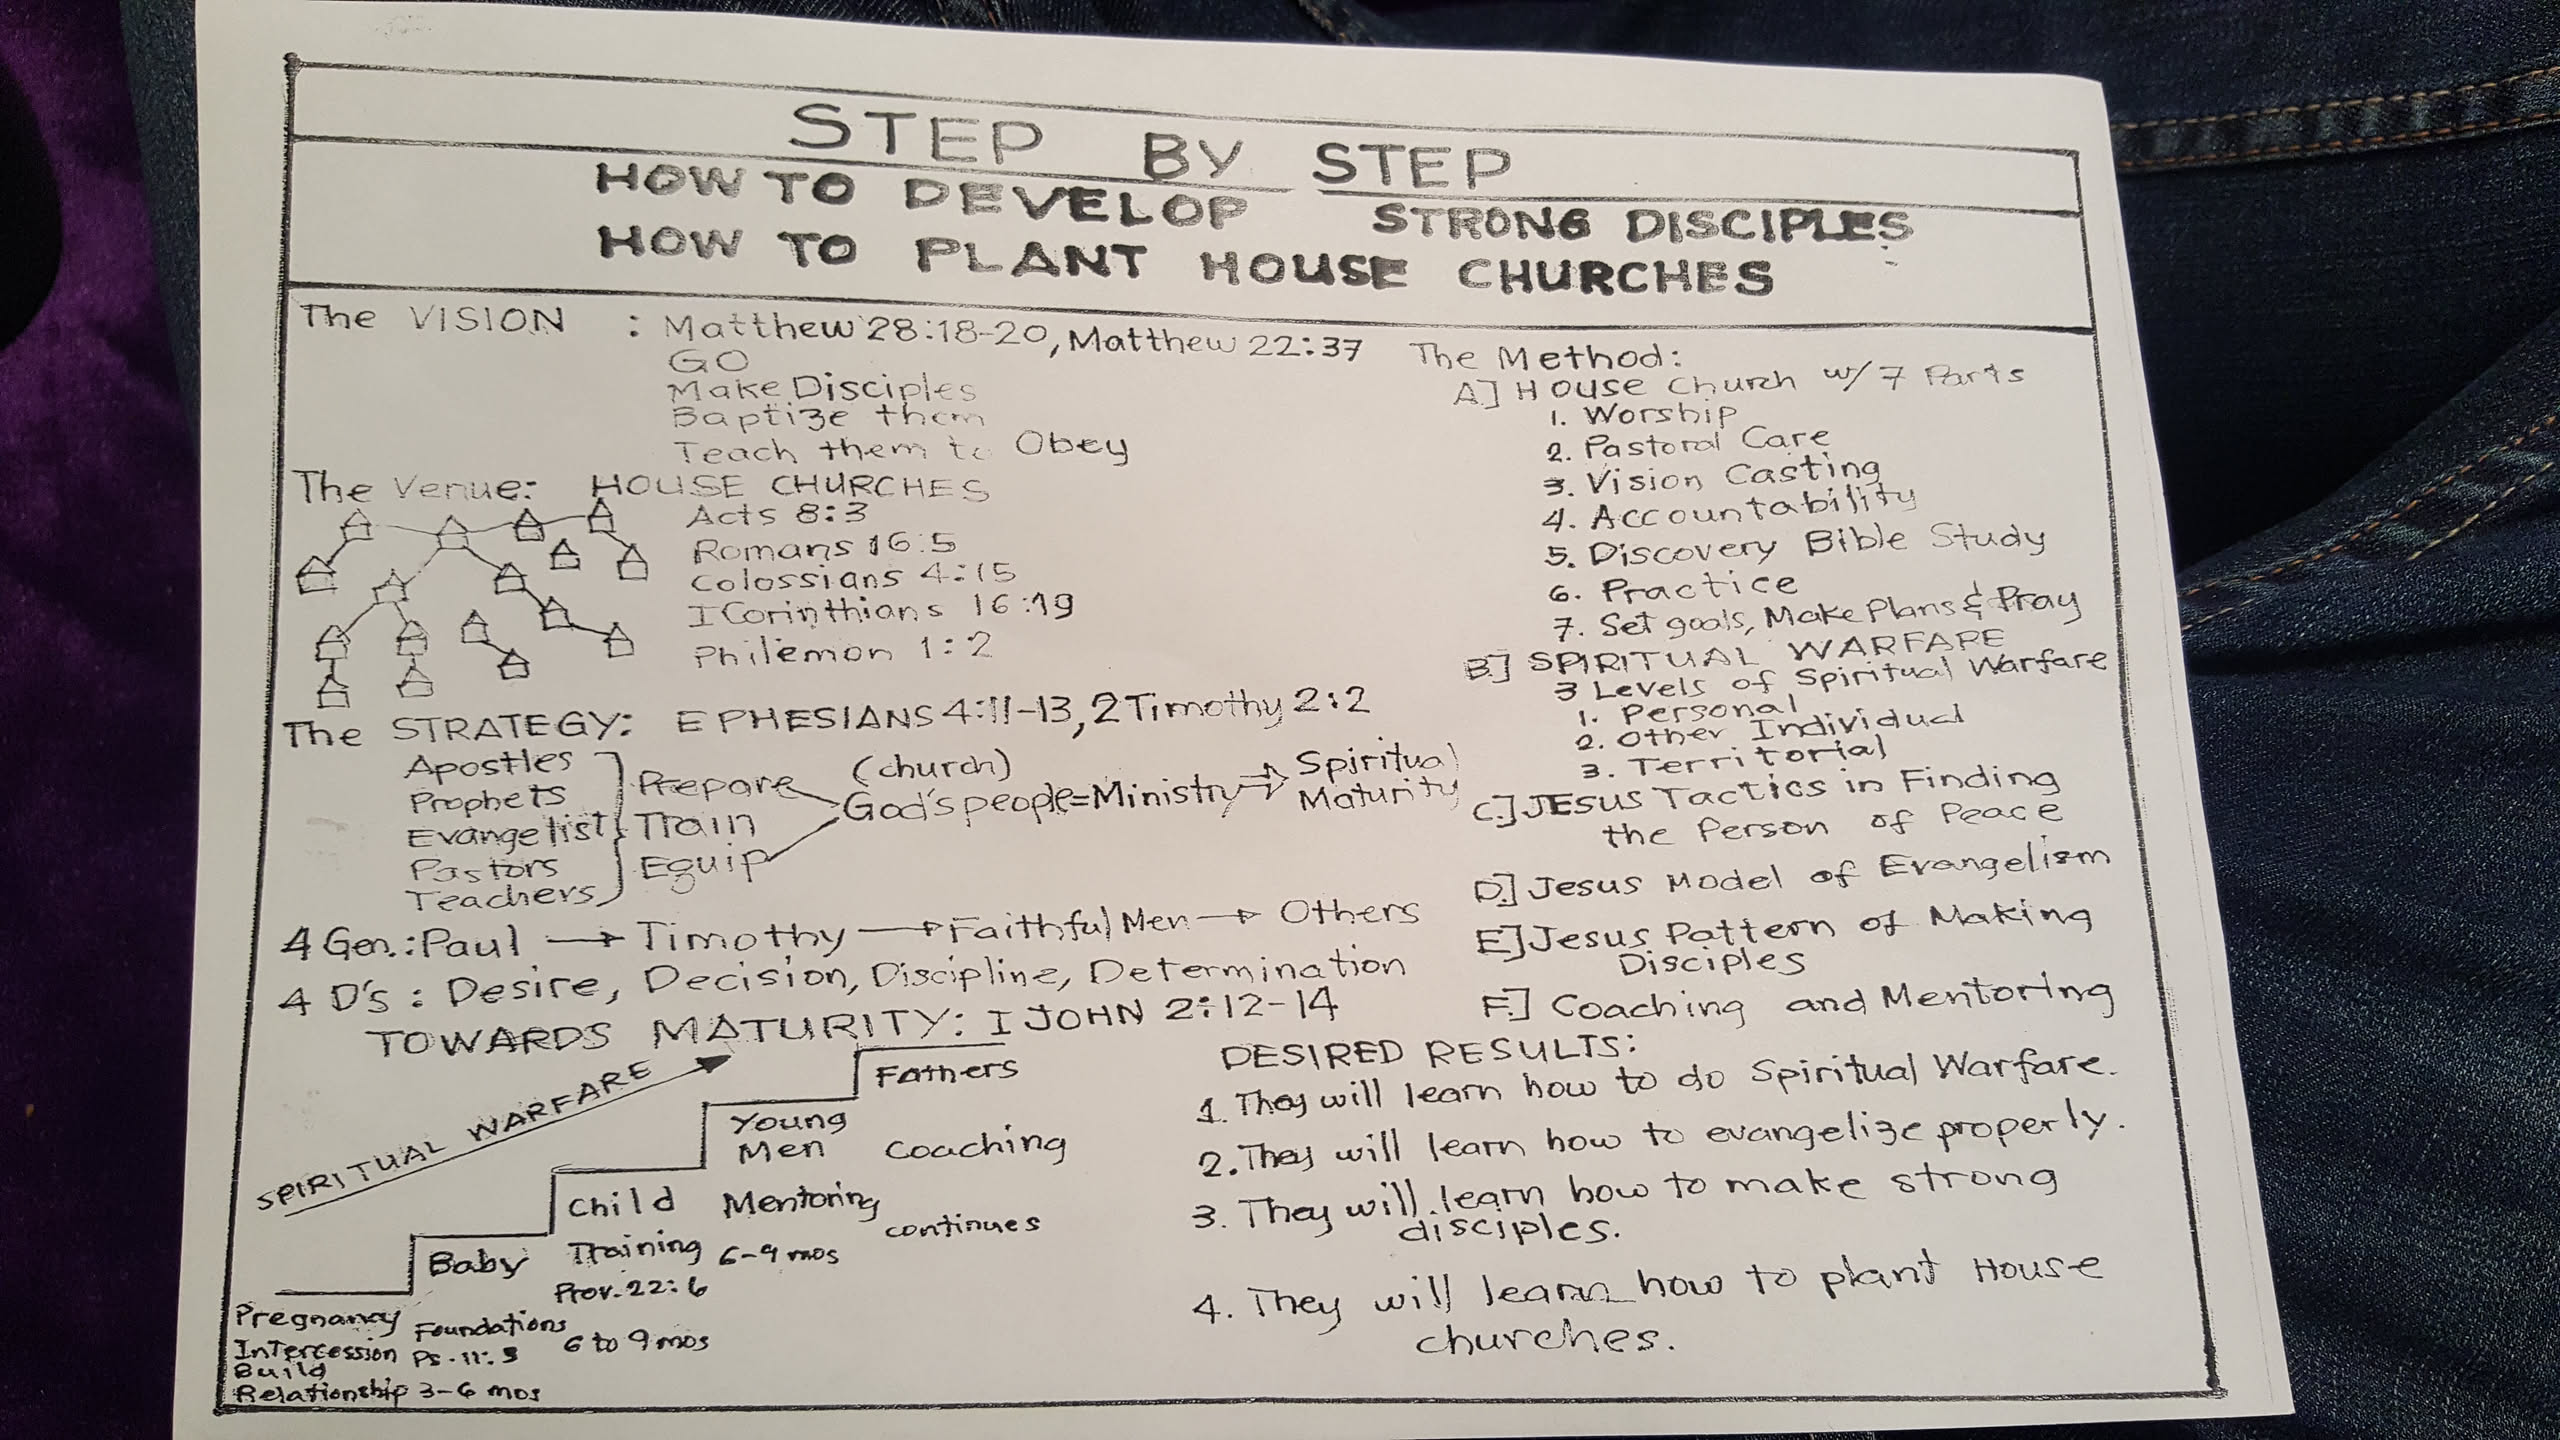 STEP BY STEP
HOW TO DEVELOP STRONG DISCIPLES
HOW TO PLANT HOUSE CHURCHES
The VISION : Matthew 28:18-20, Matthew 22:37
GO
Make Disciples
Baptize them
Teach them to Obey
The Venue: HOUSE CHURCHES
Acts 8:3
Romans 16:5
Colossians 4:15
I Corinthians 16:19
Philemon 1:2
The STRATEGY: EPHESIANS 4:11-13, 2 Timothy 2:2
Apostles
Prophets
Evangelist
Pastors
Teachers
Prepare
Train
Equip
(church)
God's people = Ministry → Spiritual
Maturity
4 Gen.: Paul → Timothy → Faithful Men → Others
4 D's : Desire, Decision, Discipline, Determination
TOWARDS MATURITY: I JOHN 2:12-14
SPIRITUAL WARFARE
Fathers
Young
Men
Coaching
continues
Child
Training
Prov. 22:6
Mentoring
6-9 mos
Baby
Foundations
Ps. 11:3
6 to 9 mos
Pregnancy
Intercession
Build
Relationship 3-6 mos
The Method:
A] House Church w/ 7 Parts
1. Worship
2. Pastoral Care
3. Vision Casting
4. Accountability
5. Discovery Bible Study
6. Practice
7. Set goals, Make Plans & Pray
B.] SPIRITUAL WARFARE
3 Levels of Spiritual Warfare
1. Personal
2. Other Individual
3. Territorial
C.] JESUS Tactics in Finding
the Person of Peace
D.] Jesus Model of Evangelism
E] Jesus Pattern of Making
Disciples
F.] Coaching and Mentoring
DESIRED RESULTS:
1. They will learn how to do Spiritual Warfare.
2. They will learn how to evangelize properly.
3. They will learn how to make strong
disciples.
4. They will learn how to plant House
churches.